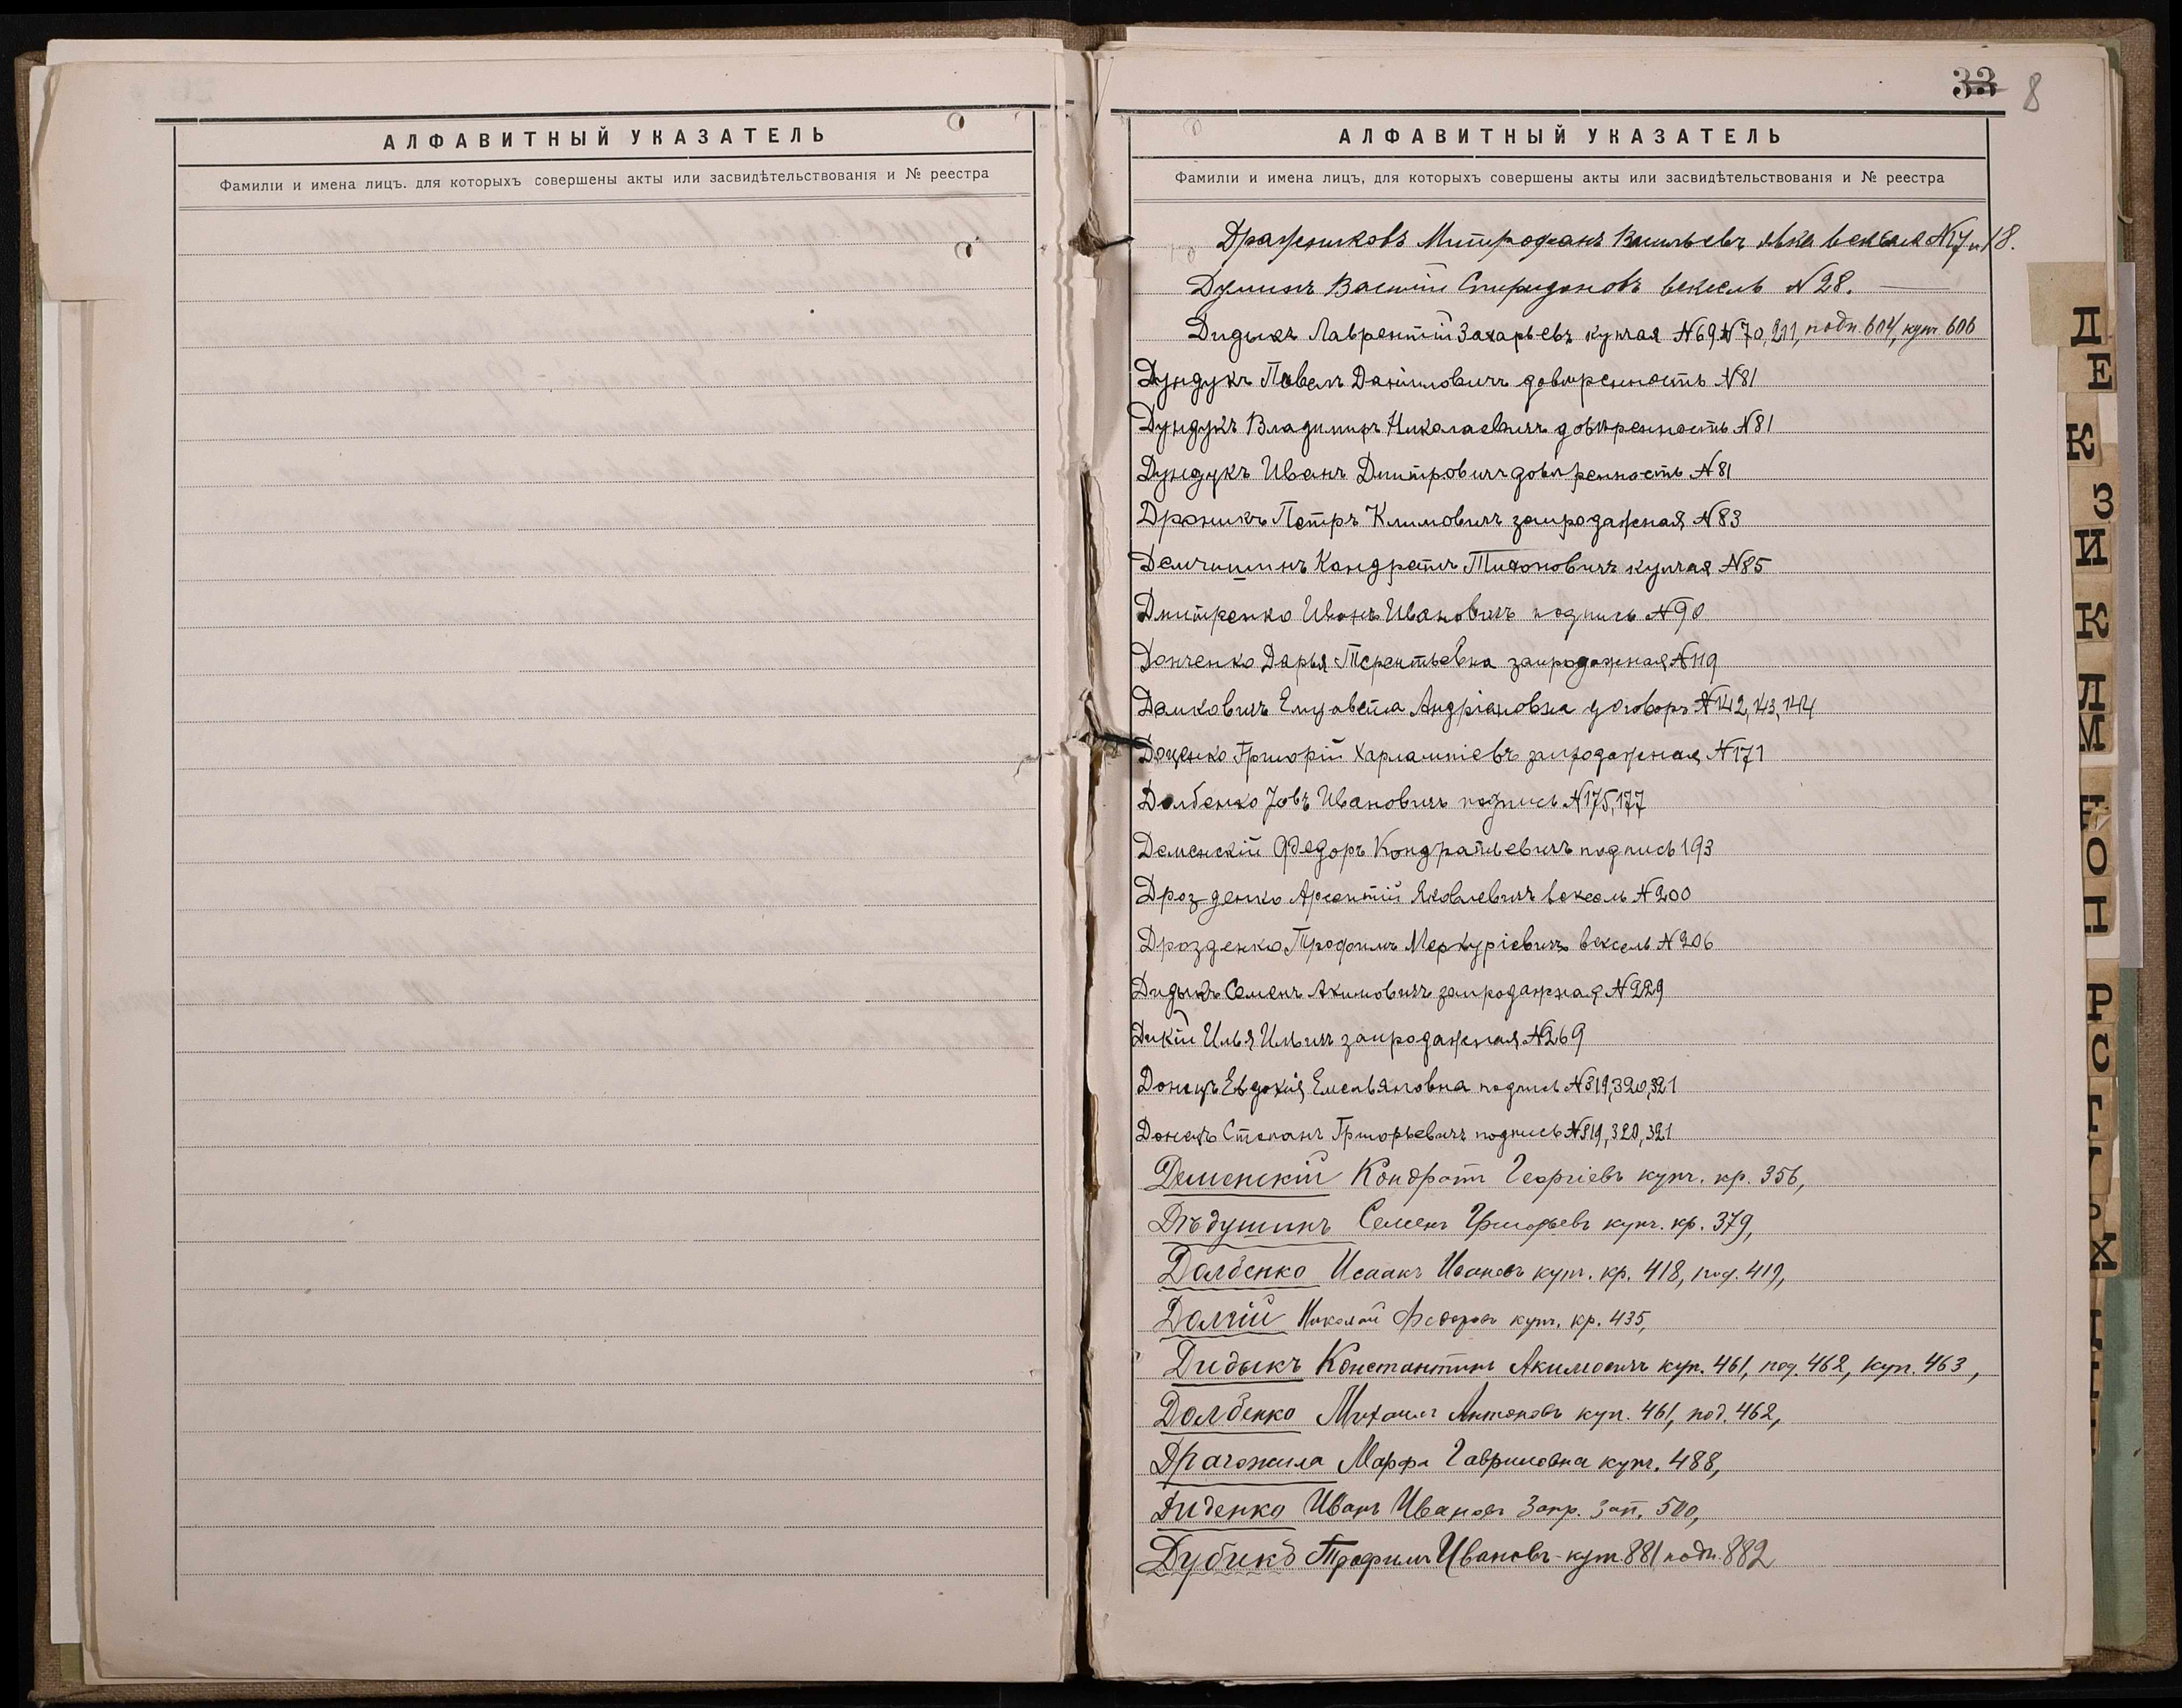 АЛФАВИТНЫЙ УКАЗАТЕЛЬ
Фамиліи и имена лицъ. для которыхъ совершены акты или засвидѣтельствованія и № реестра
33 8
АЛФАВИТНЫЙ УКАЗАТЕЛЬ
Фамиліи и имена лицъ, для которыхъ совершены акты или засвидѣтельствованія и № реестра
Дражниковъ Митрофанъ Васильевъ явка векселя №17 и 18.
Думинъ Василій Спиридоновъ вексель №28.
Дидыкъ Лаврентій Захарьевъ купчая №69 №70, 211, подп. 604, купч. 606
Дундукъ Павелъ Даніиловичъ довѣренность №81
Дундукъ Владимиръ Николаевичъ довѣренность №81
Дундукъ Иванъ Дмитровичъ довѣренность №81
Дроникъ Петръ Климовичъ запродажная №83
Демчишинъ Кондратъ Тихоновичъ купчая №85
Дмитренко Иванъ Ивановичъ подпись №90
Донченко Дарья Терентьевна запродажная №119
Данковичъ Елизавета Андріановна договоръ №142, 143, 144
Доценко Григорій Харлампіевъ запродажная №171
Долбенко Іовъ Ивановичъ подпись №175, 177
Деменскій Федоръ Кондратьевичъ подпись 193
Дрозденко Арсентій Яковлевичъ вексель №200
Дрозденко Трофимъ Меркуріевичъ вексель №206
Дидыкъ Семенъ Акимовичъ запродажная №229
Дикій Илья Ильичъ запродажная №269
Донецъ Евдокія Емельяновна подпись №319, 320, 321
Донецъ Степанъ Григорьевичъ подпись №319, 320, 321
Деменскій Кондратъ Георгіевъ купч. кр. 356,
Дѣдушинъ Семенъ Григорьевъ купч. кр. 379,
Долбенко Исаакъ Ивановъ купч. кр. 418, под. 419,
Долгій Николай Федоровъ купч. кр. 435,
Дидыкъ Константинъ Акимовичъ куп. 461, под. 462, куп. 463,
Долбенко Михаилъ Антоновъ куп. 461, под. 462,
Драгожила Марфа Гавриловна купч. 488,
Диденко Иванъ Ивановъ Запр. зап. 500,
Дубикъ Трофимъ Ивановъ купч. 881 подп. 882
Д
Е
К
З
И
К
Л
М
О
Н
Р
С
Х